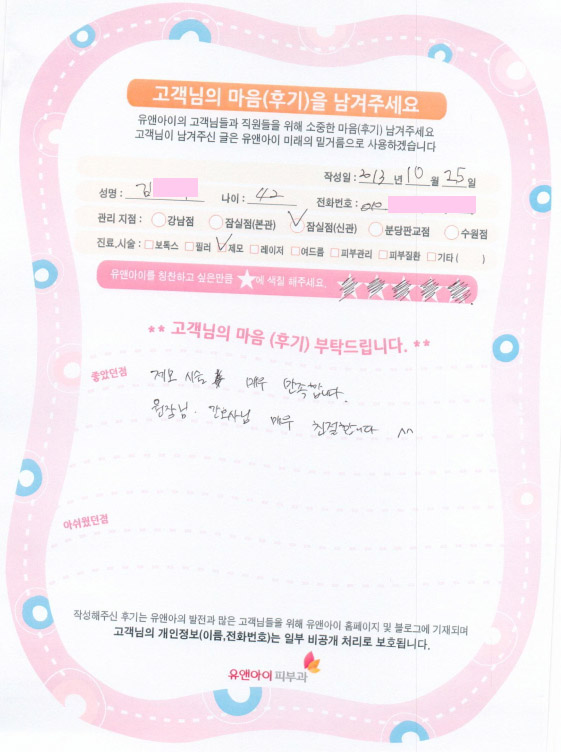 고객님의 마음(후기)을 남겨주세요
유앤아이의 고객님들과 직원들을 위해 소중한 마음(후기) 남겨주세요
고객님이 남겨주신 글은 유앤아이 미래의 밑거름으로 사용하겠습니다
작성일 : 2013 년 10 월 25 일
성명 : 김 나이 : 42 전화번호 : 010
관리 지점 : 강남점 잠실점(본관) 잠실점(신관) 분당판교점 수원점
진료,시술 : 보톡스 필러 제모 레이저 여드름 피부관리 피부질환 기타 ( )
유앤아이를 칭찬하고 싶은만큼 ★에 색칠 해주세요. ★★★★★
** 고객님의 마음 (후기) 부탁드립니다. **
좋았던점 제모 시술 매우 만족합니다.
원장님. 간호사님 매우 친절합니다 ^^
아쉬웠던점
작성해주신 후기는 유앤아의 발전과 많은 고객님들을 위해 유앤아이 홈페이지 및 블로그에 기재되며
고객님의 개인정보(이름,전화번호)는 일부 비공개 처리로 보호됩니다.
유앤아이 피부과